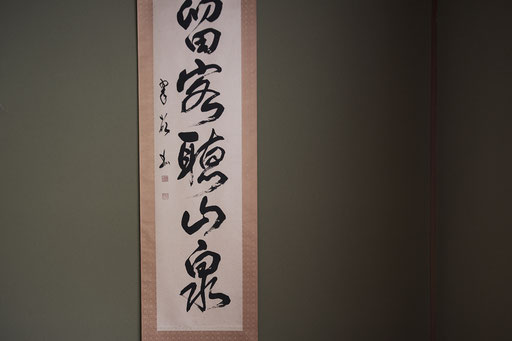 留客聴山泉